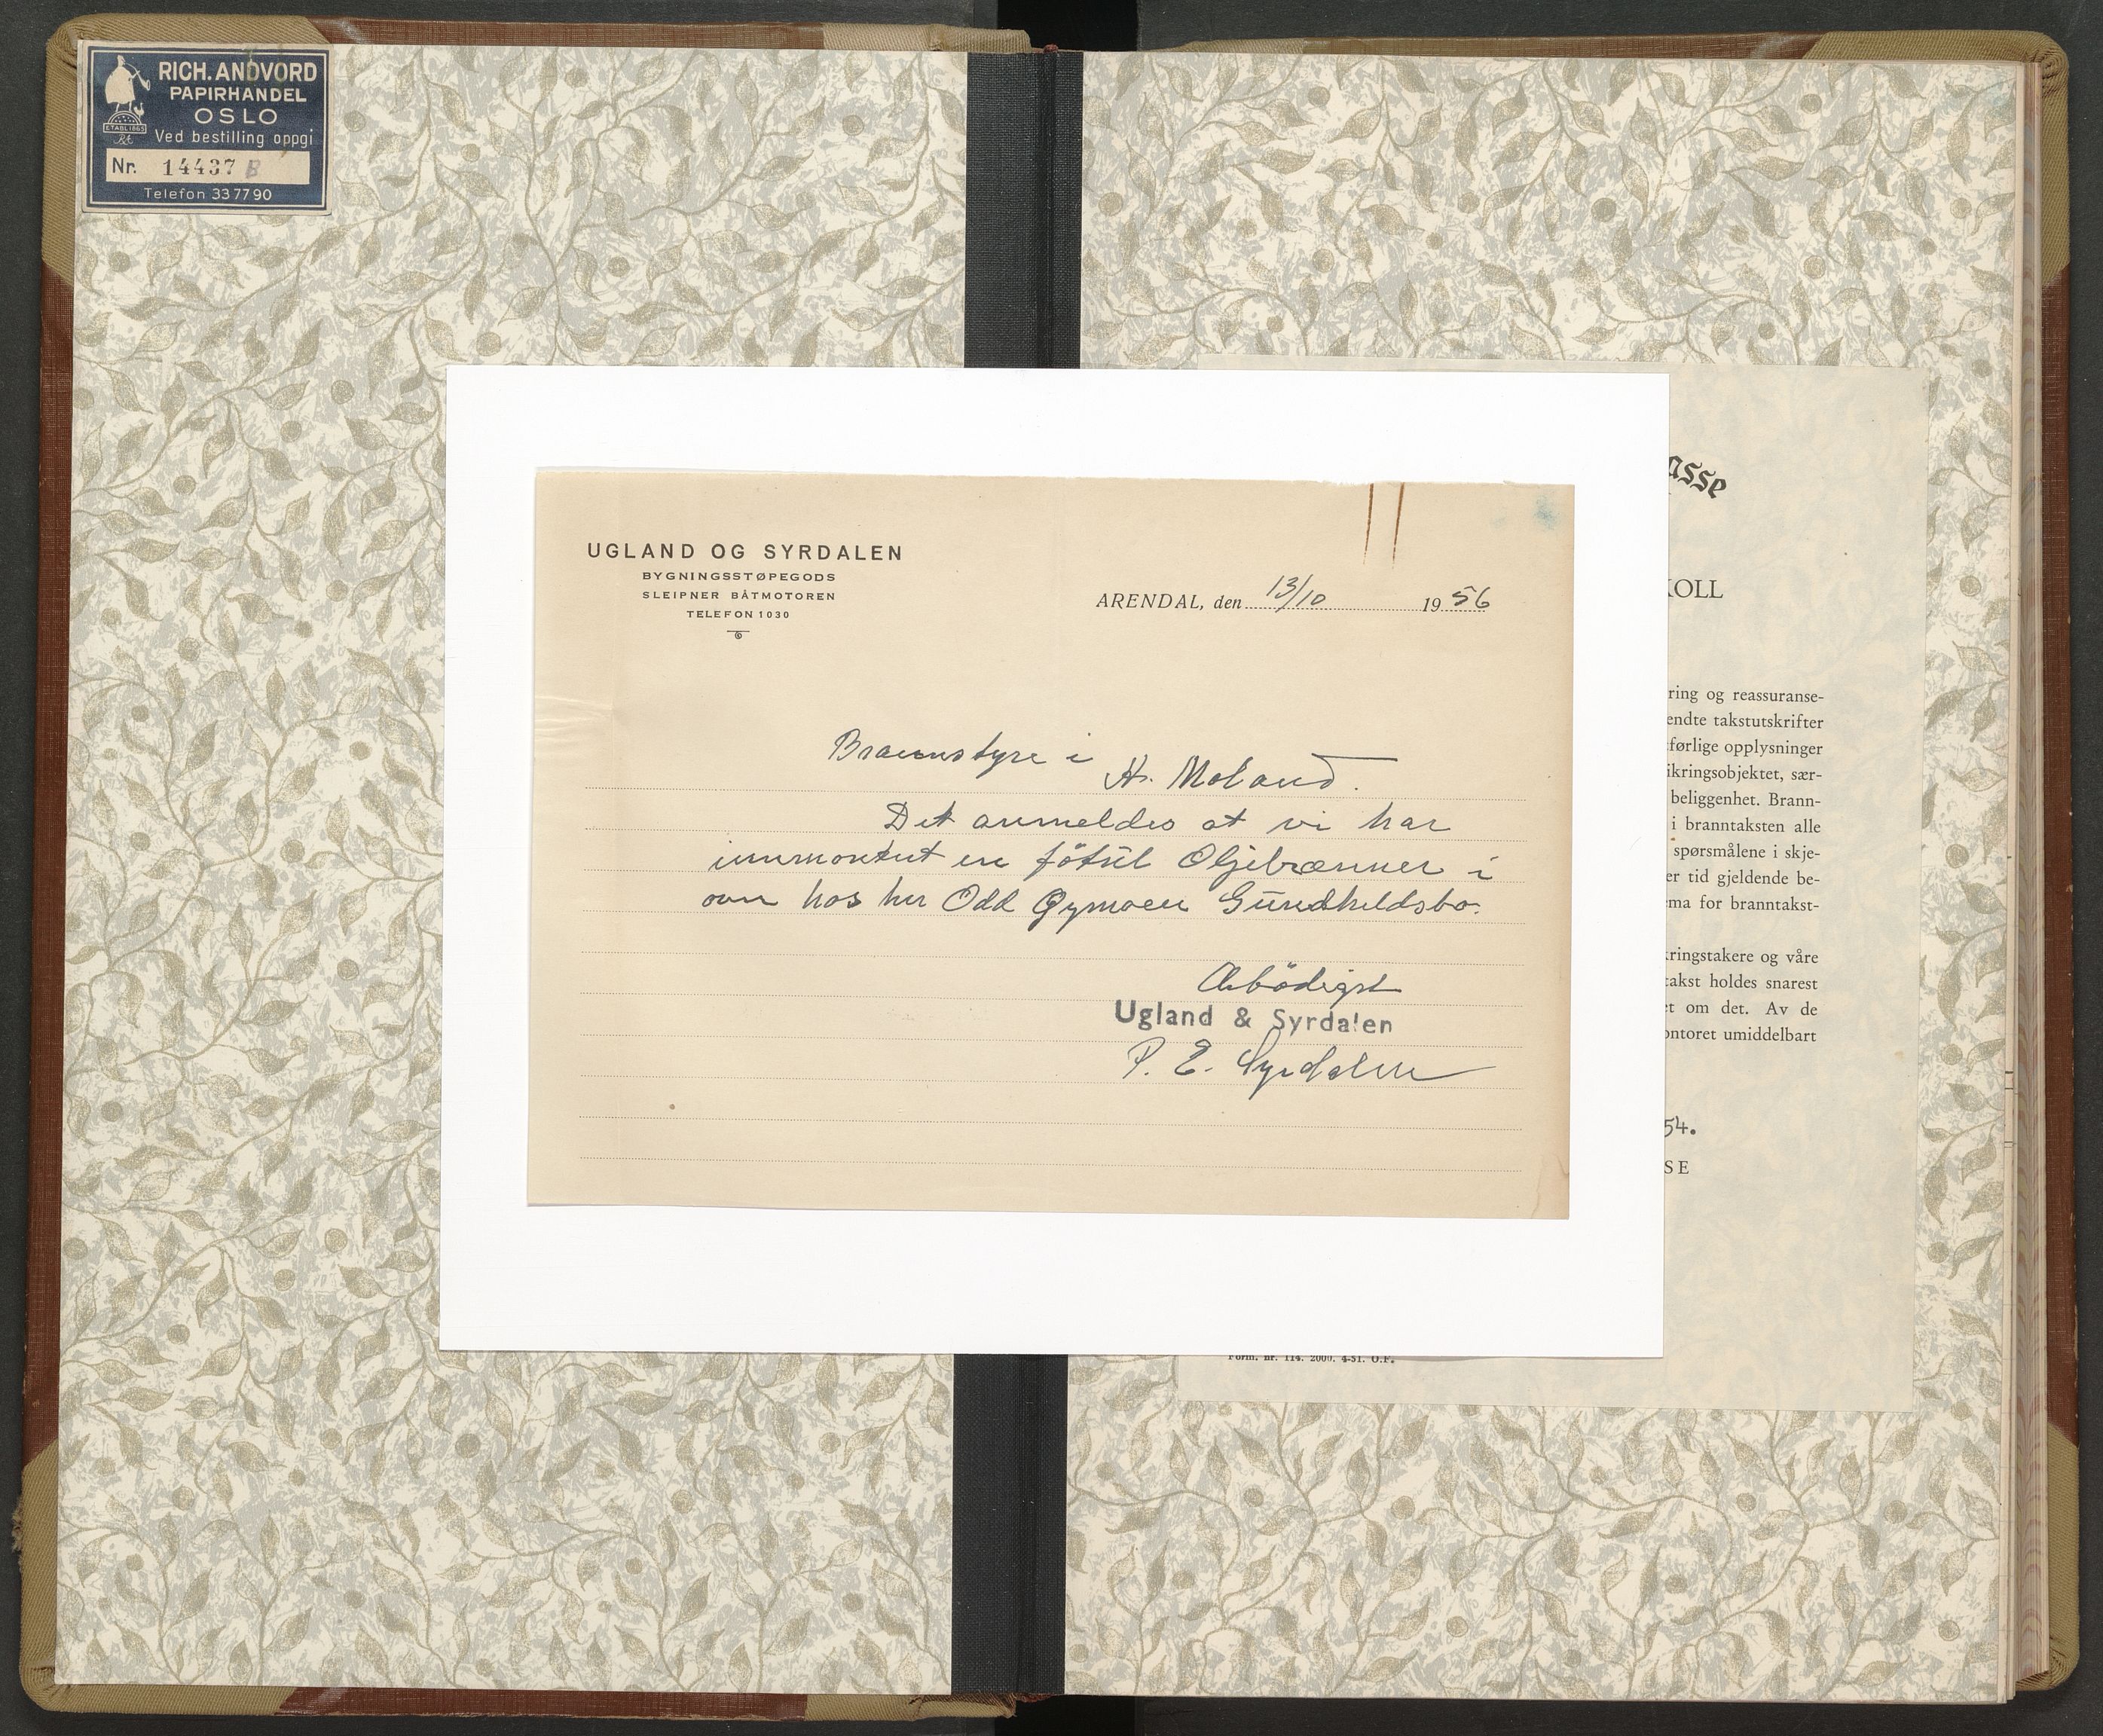 RICH. ANDVORD
PAPIRHANDEL
OSLO
ETABL 1865
Ved bestilling oppgi
Nr. 14437 B
Telefon 337790
UGLAND OG SYRDALEN
BYGNINGSSTØPEGODS
SLEIPNER BÅTMOTOREN
TELEFON 1030
ARENDAL, den 13/10 1956
Brannstyre i
H. Moland.
Det anmeldes at vi har
innmontert en Oljebrænner i
ovn hos her Odd Gundhildsbo.
Ærbödigst
Ugland & Syrdalen
P. E. Syrdalen
asse
KOLL
ring og reassuranse-
endte takstutskrifter
førlige opplysninger
ikringsobjektet, sær-
beliggenhet. Brann-
i branntaksten alle
spørsmålene i skje-
er tid gjeldende be-
ma for branntakst-
kringstakere og våre
takst holdes snarest
et om det. Av de
ontoret umiddelbart
54.
SE
Form. nr. 114. 2000. 4-51. O.F.